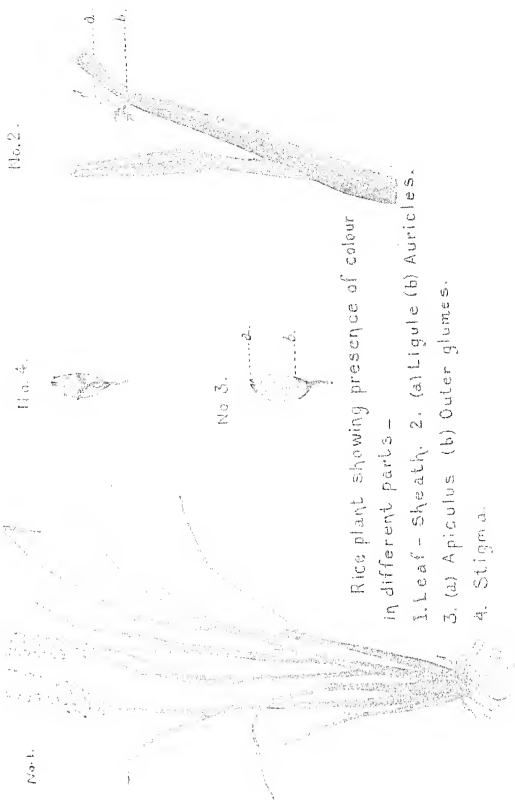 No.1.
No.2.
a.
b.
No.4.
No 3.
a.
b.
Rice plant showing presence of colour
in different parts—
1. Leaf-Sheath. 2. (a) Ligule (b) Auricles.
3. (a) Apiculus (b) Outer glumes.
4. Stigma.